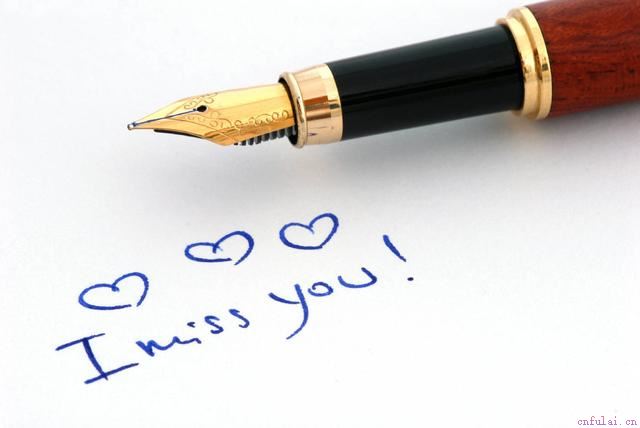 I miss you!
cnfulai.cn